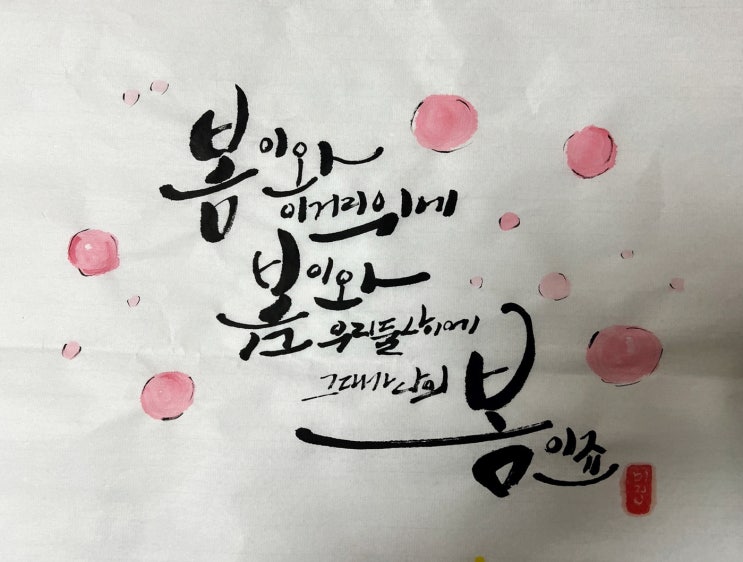 봄이와
이거리위에
봄이와
우리둘사이에
그대가나의
봄이쥬